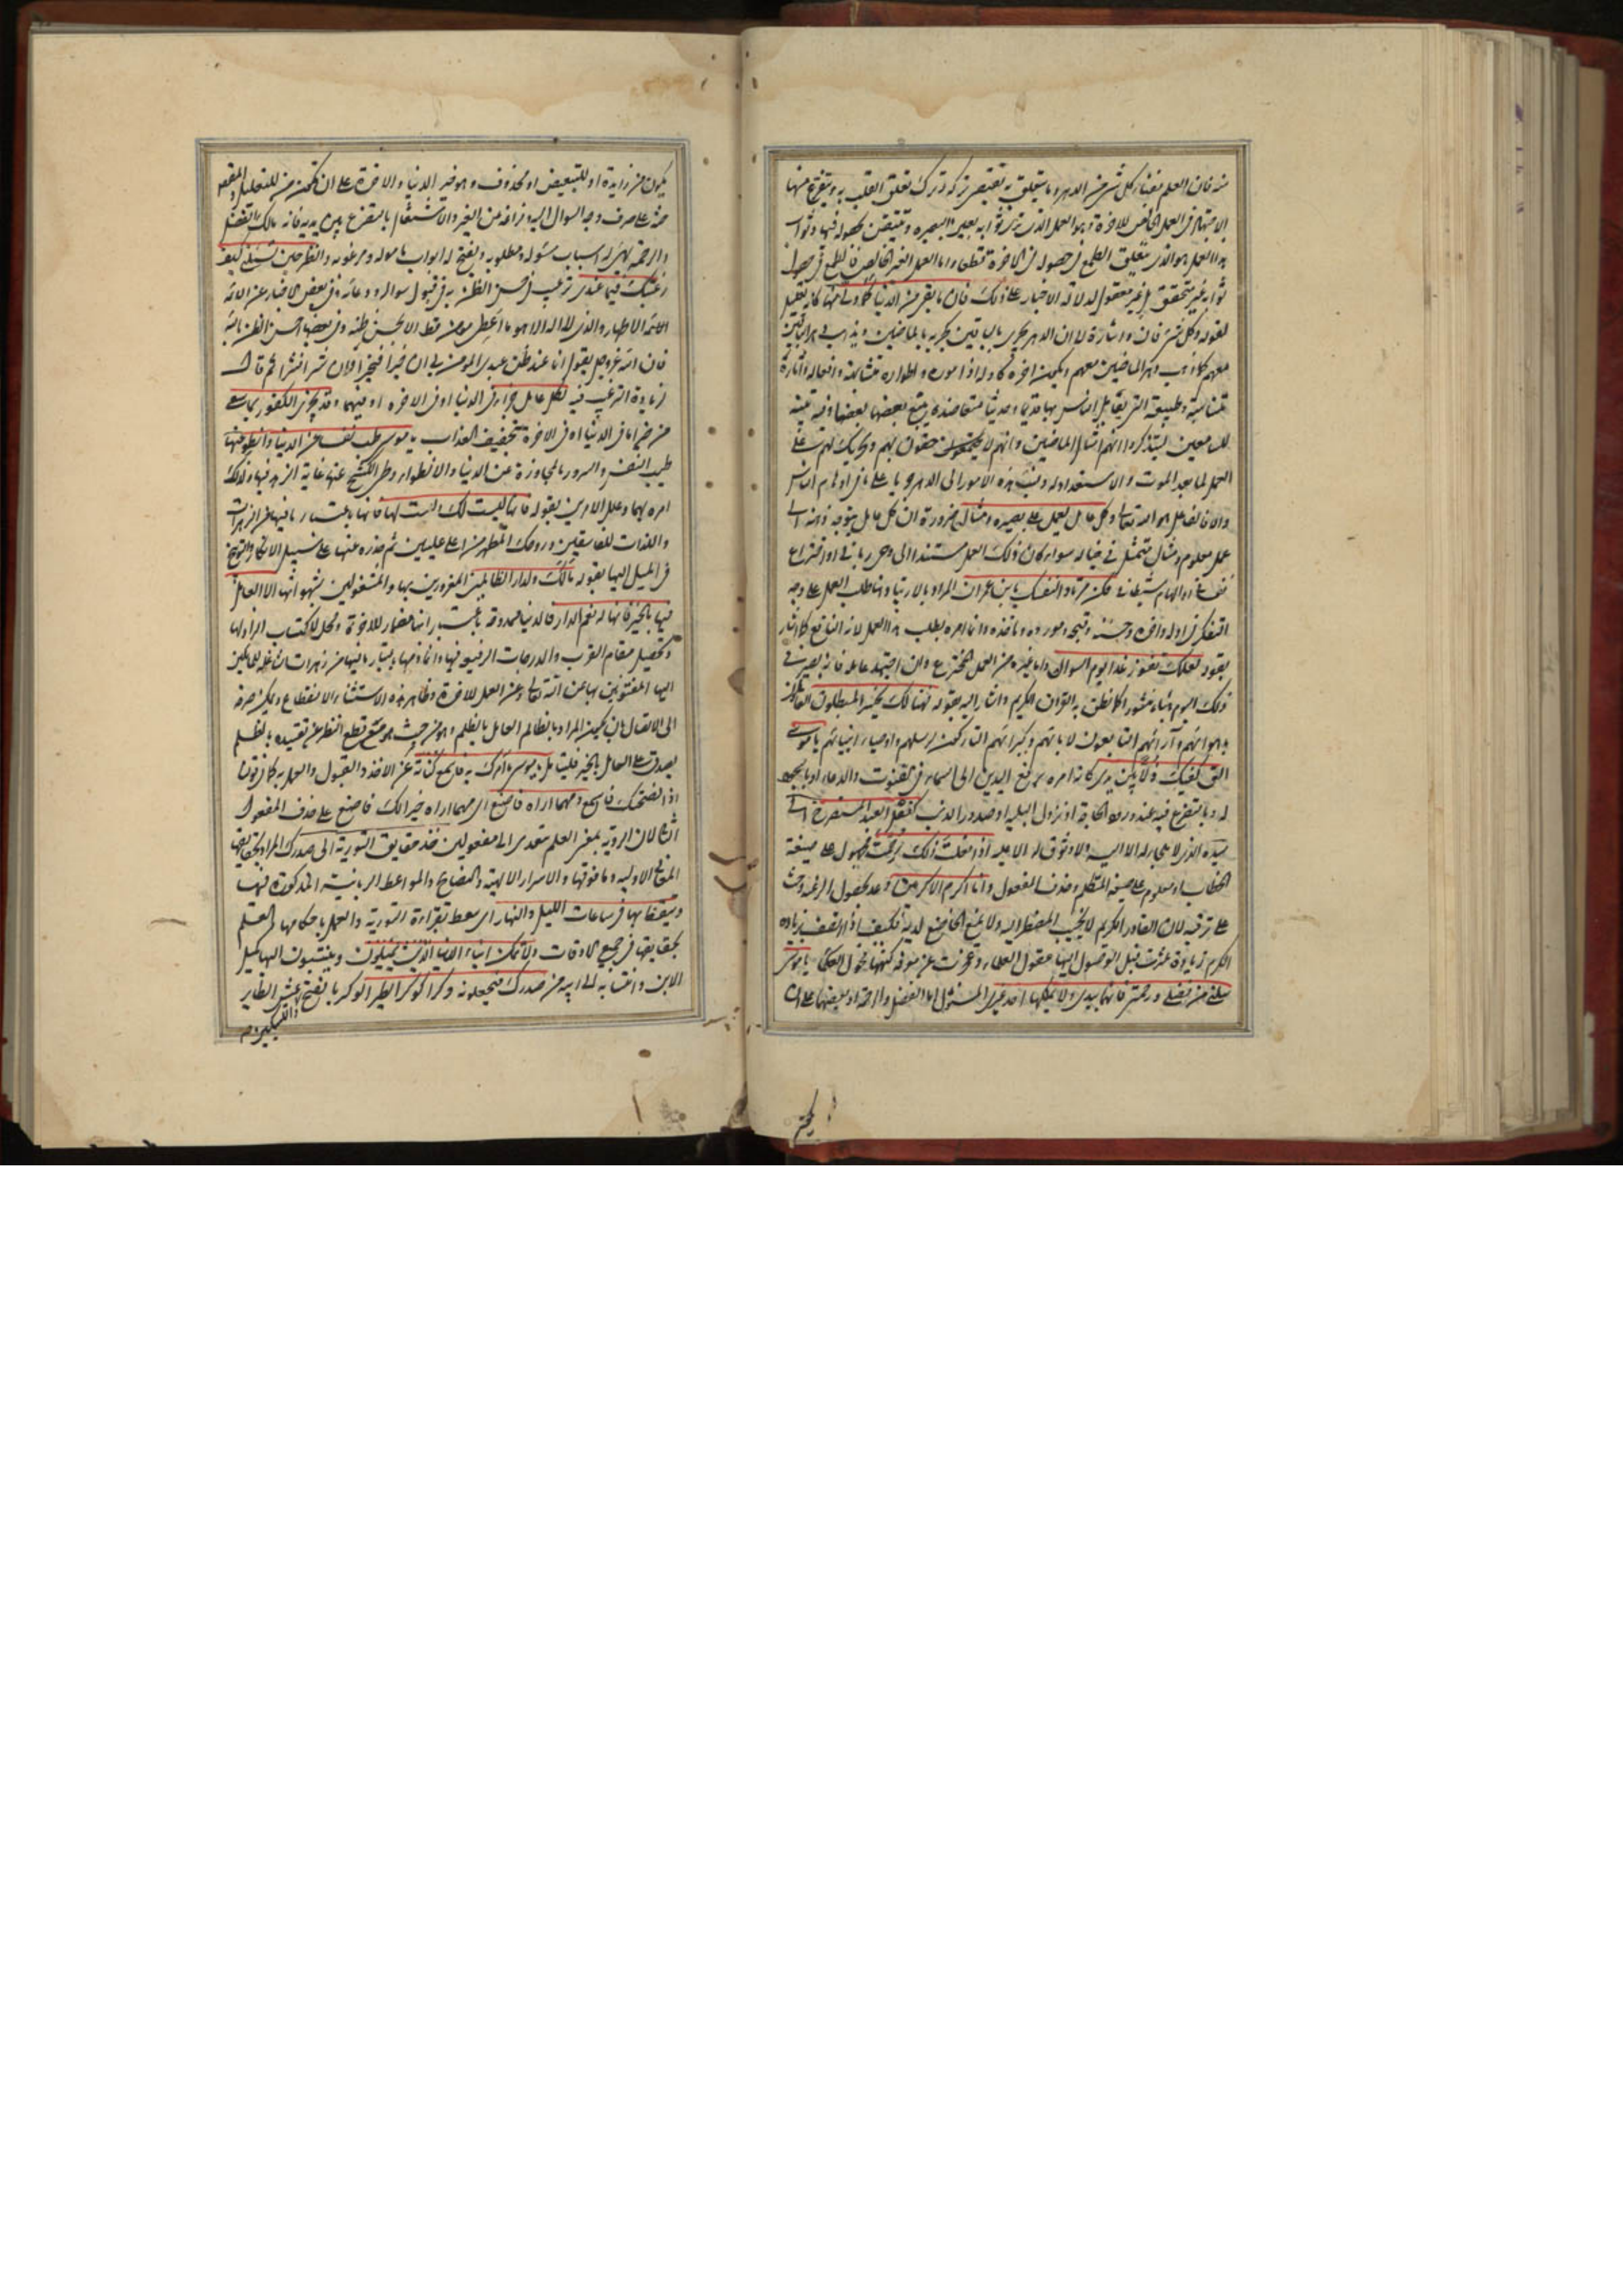 منه فان العلم بفناء كل شئ من الدهر وما يتعلق به يقتضى تركه وترك تعلق القلب به ويتفرع منها
الاجتهاد فى العمل الخالص للاخرة وهو العمل الذى يرى ثوابه بعين البصيره وتيقن بحصوله فيها وثواب
هذا العمل هو الذى يتعلق الطمع لحصوله فى الاخرة قطعا واما العمل الغير الخالص فالطمع فى حصول
ثوابه غير متحقق غير معقول لدلالة الاخبار على ذلك فان ما بقى من الدنيا كما ولى منها كانه تعليل
لقوله وكل شئ فان واشارة لان الدهر يجرى بالباقين كجريه بالماضين ويذهب فى
معهم كما ذهب دهر الماضين معهم ويكون اخره كاوله اذ اموره واطواره متشابهة وافعاله واثاره
متناسبة وطبيعته التى يقابل الناس بها قديما وحديثا متعاضدة يتبع بعضها بعضا وفيه تنبيه
للسامعين ليتذكروا انهم امثال الماضين وانهم لاحقون بهم وتحريك لهم على
العمل لما بعد الموت والاستعداد له ونسبة هذه الامور الى الدهر جريا على ما فى اوهام الناس
والا فالفاعل هو الله تعالى وكل عامل يعمل على بصيرة ومثال ضرورة ان كل عامل يتوجه ذهنه الى
عمل معلوم ومثال متمثل فى خياله سواء كان ذلك العمل مستندا الى وحى ربانى او اختراع
نفسانى او الهام شيطانى فكن مرتادا لنفسك يابن عمران المراد بالارتياد هنا طلب العمل على وجه
التفكر فى اوله واخره وحسنه وقبحه ومورده وماخذه وانما امره بطلب هذا العمل لانه النافع كما اشار
بقوله لعلك تفوز غدا يوم السوال واما غيره من العمل المخترع وان اجتهد عامله فانه يصير فى
ذلك اليوم هباء منثورا كما نطق به القران الكريم واشار اليه بقوله فهنالك يخسر المبطلون
باهوائهم وآرائهم التابعون لابائهم وكبرائهم التاركون لرسلهم واوصياء انبيائهم يا موسى
الق كفيك ذلا بين يدى كانه امره برفع اليدين الى السماء فى القنوت والدعاء
له وبالتضرع فيه عند ورود الحاجة او نزول البليه او صدور الذنب كفعل العبد المستصرخ الى
سيده الذى لا ملجا له الا اليه ولا وثوق له الا عليه اذا فعلت ذلك رحمت مجهول على صيغة
الخطاب او معلوم على صيغة المتكلم وحذف المفعول وانا اكرم الاكرمين وعد بحصول الرحمة وحث
على ترقبه لان القادر الكريم لا يخيب المضطر اليه ولا يمنع الخاضع لديه فكيف اذا اتصف بزيادة
الكرم زيادة عثرت قبل الوصول اليها عقول العلماء وعجزت عن معرفة كنهها فحول الحكماء يا موسى
سلنى من فضلى ورحمتى فانهما بيدى ولا يملكهما احد غيرى المسئول اما الفضل والرحمة او بعضهما على ان
يكون من زايدة او للتبعيض او محذوف وهو خير الدنيا والاخرة على ان يكون من للتعليل
حثه على صرف وجه السوال اليه وفراغه من الغير والاشتغال بالتضرع بين يديه فانه مالك الفضل
والرحمة يهيئ له اسباب مسئوله ومطلوبه ويفتح له ابواب مأموله ومرغوبه وانظر حين تسئلنى كيف
رغبتك فيما عندى ترغيب فى حسن الظن به فى قبول سواله ودعائه وفى بعض الاخبار عن
الائمة الاطهار والذى لا اله الا هو ما اعطى مومن قط الا بحسن ظنه وفى بعضها احسن الظن بالله
فان الله عز وجل يقول انا عند ظن عبدى المومن بى ان خيرا فخيرا وان شرا فشرا ثم قال
لزيادة الترغيب فيه لكل عامل جزاء فى الدنيا او فى الاخره او فيهما وقد يجزى الكفور بما سعى
من خير اما فى الدنيا او فى الاخرة بتخفيف العذاب يا موسى طب نفسا عن الدنيا وانطو عنها
طيب النفس والسرور بالمجاوزة عن الدنيا والانطواء وطى الكشح عنها غاية الزهد فيها ولذلك
امره بهما وعلل الامرين بقوله فانها ليست لك ولست لها فانها باعتبار ما فيها من الزهرات
واللذات للفاسقين وروحك المطهر من اعلى عليين ثم حذره عنها على سبيل الانكار والتوبيخ
فى الميل اليها بقوله مالك ولدار الظالمين المغرورين بها والمشغولين بشهواتها الا العامل
فيها بالخير فانها له نعم الدار فالدنيا ممدوحة باعتبار انها مضمار للاخرة ومحل لاكتساب الزاد لها
وتحصيل مقام القرب والدرجات الرفيعه فيها وانما ذمها باعتبار ما فيها من زهرات شاغلة للمايلين
اليها المفتونين بها عن الله تعالى وعن العمل للاخرة وظاهر هذه الاستثناء الانقطاع ويمكن صرفه
الى الاتصال بان يكون المراد بالظالم العامل بالظلم وهو من حيث هو مع قطع النظر عن تقييده بالظلم
يصدق على العامل بالخير فليتامل يا موسى ما آمرك به فاسمع كناية عن الاخذ والقبول والعمل به كما فى قولنا
اذا نصحتك فاسمع ومهما اراه فاصنع اى مهما اراه خيرا لك فاصنع على حذف المفعول
الثانى لان الروية بمعنى العلم متعدى الى مفعولين خذ حقايق التورية الى صدرك المراد بحقايقها
المعانى الاوليه وما فوقها والاسرار الالهية والنصايح والمواعظ الربانية المذكورة فيها
وتيقظ بها فى ساعات الليل والنهار اى تيقظ بقراءة التورية والعمل باحكامها والعلم
بحقايقها فى جميع الاوقات ولا تمكن ابناء الدنيا الذين يميلون وينتسبون اليها كميل
الابن وانتسابه الى ابيه من صدرك فيجعلونه وكرا كوكر الطير الوكر بالفتح عش الطاير